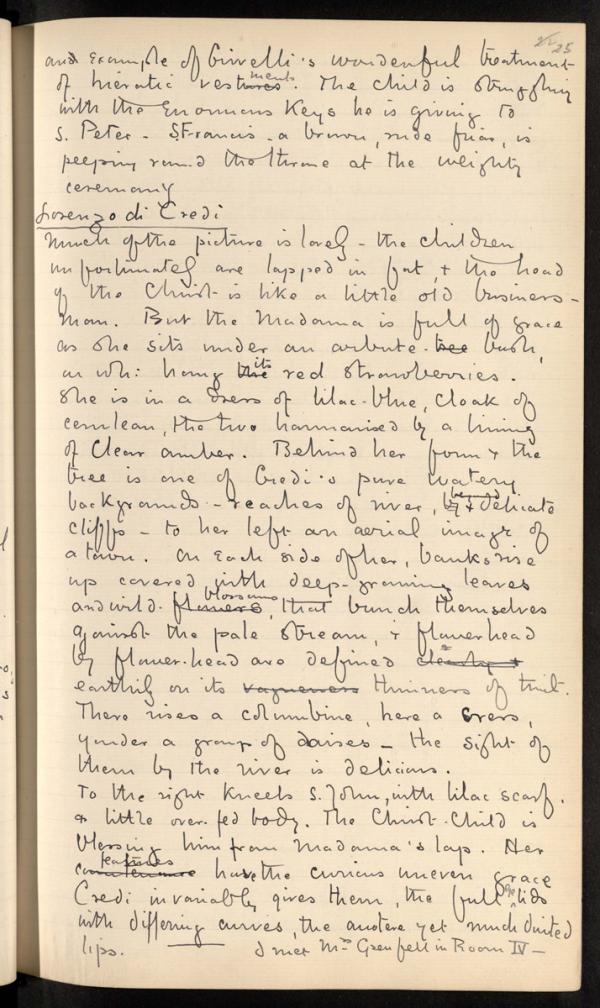 25
and example of Crivelli's wonderful treatment
of hieratic vestures ments. The Child is struggling
with the Enormous Keys he is giving to
S. Peter - S. Francis - a brown, rude friar, is
peeping round the throne at the weighty
ceremony
Lorenzo di Credi
Much of the picture is lovely - the children
unfortunately are lapped in fat, & the head
of the Christ is like a little old business-
man. But the Madonna is full of grace
as she sits under an arbute-tree bush,
on wh: hang the its red strawberries.
She is in a dress of lilac-blue, cloak of
cerulean, the two harmonised by a lining
of clear amber. Behind her form & the
tree is one of Credi's pure watery
backgrounds - reaches of river, by & delicate
cliffs - to her left an aerial image of
a town. On each side of her, banks rise
up covered with deep-growing leaves
and wild-flowers blossoms, that bunch themselves
against the pale stream, & flowerhead
by flower-head are defined clearly &
earthily on its vagueness thinness of tint.
There rises a columbine, here a cress,
yonder a group of daisies - the sight of
them by the river is delicious.
To the right kneels S. John, with lilac scarf.
& little over-fed body. The Christ-Child is
blessing him from Madonna's lap. Her
countenance features have the curious uneven grace
Credi invariably gives them, the full eye lids
with differing curves, the austere yet much divided
lips. I met Mrs Grenfell in Room IV -